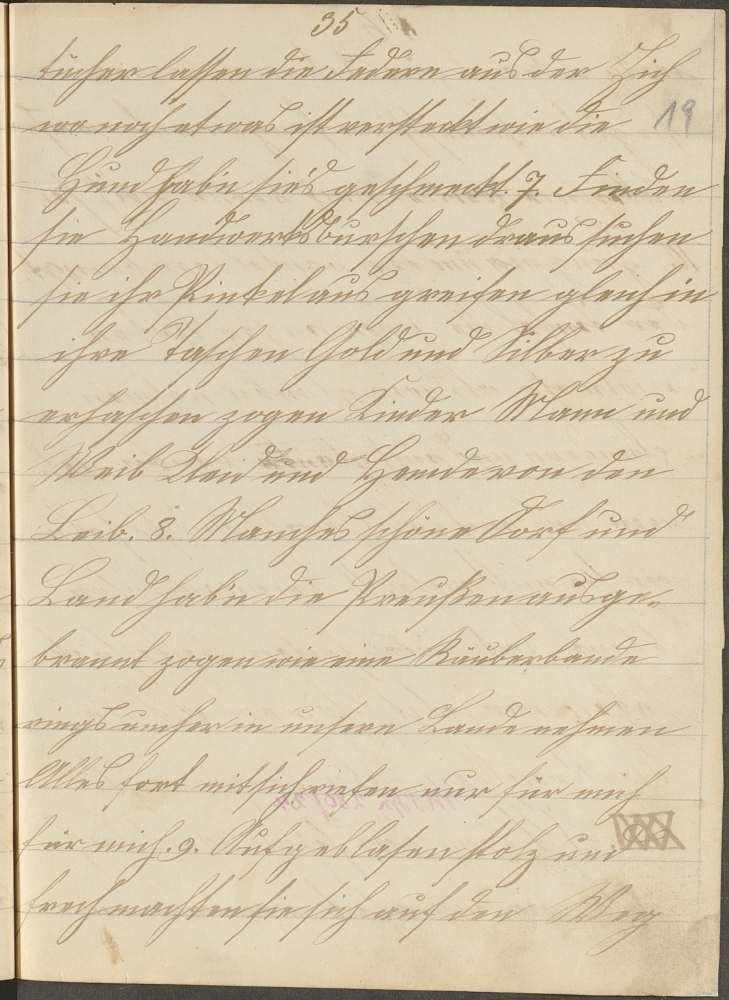 35
tücher lassen die Federn aus der Zich
19
wo noch etwas ist versteckt wie die
Hund hab'n sie's geschmeckt. 7. Finden
sie Handwerksburschen draus suchen
sie ihr Pinkel aus greifen gleich in
ihre Taschen Gold und Silber zu
erhaschen zogen Kinder Mann und
Weib Kleid und Hemde von den
Leib. 8. Manches schöne Dorf und
Land hab'n die Preußen ausge-
brannt zogen wie eine Räuberbande
rings umher in unsern Lande nehmen
Alles fort mit sich riefen nur für mich
für mich. 9. Aufgeblasen stolz und
frech machten sie sich auf den Weg